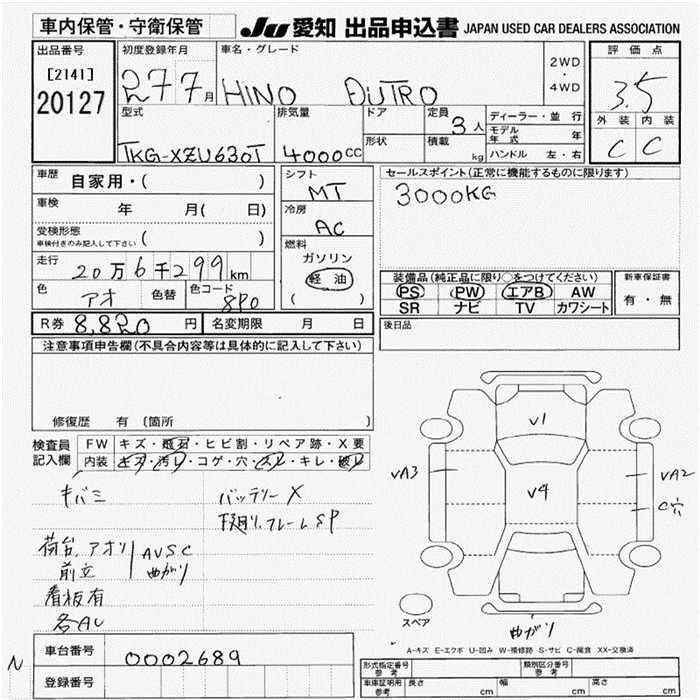 車内保管・守衛保管
JU 愛知 出品申込書 JAPAN USED CAR DEALERS ASSOCIATION
出品番号
[2141]
20127
初度登録年月
27 7月
車名・グレード
HINO DUTRO
2WD
・
4WD
評価点
3.5
外装 内装
C C
型式
TKG-XZU630T
排気量
4000cc
ドア
形状
定員
3人
積載
kg
ディーラー・並行
モデル年式 年
ハンドル 左・右
車歴 自家用・( )
車検 年 月( 日)
受検形態
車検付きのみ記入して下さい ( )
走行
20万6千299km
色 アオ 色替 色コード 8P0
シフト
MT
冷房
AC
燃料
ガソリン
軽油
( )
セールスポイント(正常に機能するものに限ります)
3000KG
装備品(純正品に限り○をつけてください)
PS PW エアB AW
SR ナビ TV カワシート
新車保証書
有・無
R券 8,820円 名変期限 月 日
後日品
注意事項申告欄(不具合内容等は具体的に記入して下さい)
修復歴 有 〔箇所 〕
検査員記入欄
FW キズ・飛石・ヒビ割・リペア跡・X要
内装 キズ・汚レ・コゲ・穴・スレ・キレ・破レ
キバミ
バッテリーX
下廻り、フレームSP
荷台、アオリ
前立
AVSC
曲がり
看板有
各AU
V1
V4
VA3
VA2
C穴
曲がり
スペア
A-キズ E-エクボ U-凹み W-補修跡 S-サビ C-腐食 XX-交換済
N
車台番号 0002689
登録番号
形式指定番号
参考
類別区分番号
参考
車庫証明用
参考
長さ cm 幅 cm 高さ cm